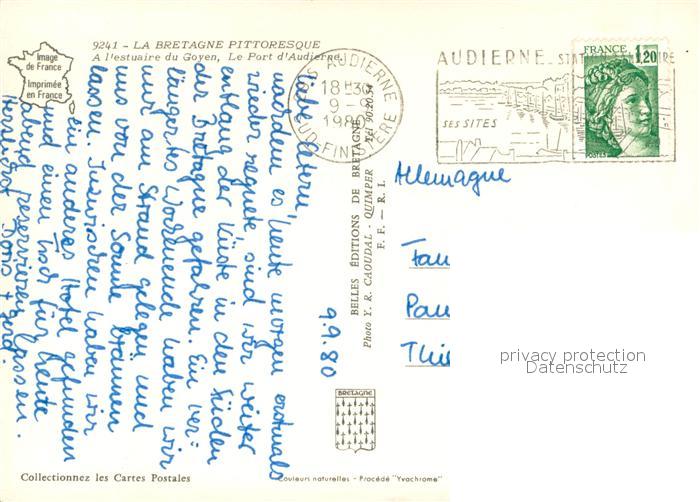 9241 - LA BRETAGNE PITTORESQUE
A l'estuaire du Goyen, Le Port d'Audierne
Image
de France
Imprimée
en France
AUDIERNE
18H30
9-9
1980
SUD-FINISTERE
AUDIERNE_
SES SITES
FRANCE
1,20
POSTES
Liebe Eltern,
nachdem es heute morgen erstmals
wieder regnete, sind wir weiter
entlang der Küste in den Süden
der Bretagne gefahren. Ein ver-
längertes Wochenende haben wir
nur am Strand gelegen und
uns von der Sonne bräunen
lassen. Inzwischen haben wir
ein anderes Hotel gefunden
und einen Tisch für heute
abend reservieren lassen.
Herzlichst Doris + Gerd.
9.9.80
BELLES ÉDITIONS DE BRETAGNE
Photo Y. R. CAOUDAL - QUIMPER Tél. 90.20.54
F. F. - R. I.
BRETAGNE
Allemagne
Fam
Pau
privacy protection
Datenschutz
Collectionnez les Cartes Postales
Couleurs naturelles - Procédé "Yvachrome"